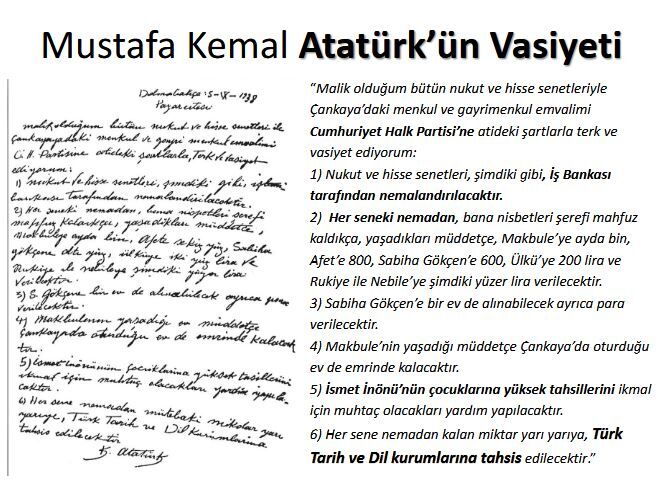 Mustafa Kemal Atatürk’ün Vasiyeti
Dolmabahçe: 5-IX-1938
Pazartesi
malik olduğum bütün nukut ve hisse senetleri ile
Çankayadaki menkul ve gayri menkul emvalimi
C. H. Partisine atideki şartlarla, Terk ve vasiyet
ediyorum:
1) nukut ve hisse senetleri, şimdiki gibi, iş
bankası tarafından nemalandırılacaktır.
2) Her seneki nemadan, bana nispetleri şerefi
mahfuz kaldıkça, yaşadıkları müddetçe,
Makbuleye ayda bin, Afete sekiz yüz, Sabiha
Gökçene altı yüz, Ülküye iki yüz lira ve
Rukiye ile Nebileye şimdiki yüzer lira
verilecektir.
3) S. Gökçene bir ev de alınabilecek ayrıca para
verilecektir.
4) Makbulenin yaşadığı müddetçe
Çankayada oturduğu ev de emrinde kalacak
tır.
5) İsmet İnönünün çocuklarına yüksek tahsillerini
ikmal için muhtaç olacakları yardım yapıla
caktır.
6) Her sene nemadan mütebaki miktar yarı
yarıya, Türk Tarih ve Dil Kurumlarına
tahsis edilecektir.
K. Atatürk
“Malik olduğum bütün nukut ve hisse senetleriyle
Çankaya’daki menkul ve gayrimenkul emvalimi
Cumhuriyet Halk Partisi’ne atideki şartlarla terk ve
vasiyet ediyorum:
1) Nukut ve hisse senetleri, şimdiki gibi, İş Bankası
tarafından nemalandırılacaktır.
2) Her seneki nemadan, bana nisbetleri şerefi mahfuz
kaldıkça, yaşadıkları müddetçe, Makbule’ye ayda bin,
Afet’e 800, Sabiha Gökçen’e 600, Ülkü’ye 200 lira ve
Rukiye ile Nebile’ye şimdiki yüzer lira verilecektir.
3) Sabiha Gökçen’e bir ev de alınabilecek ayrıca para
verilecektir.
4) Makbule’nin yaşadığı müddetçe Çankaya’da oturduğu
ev de emrinde kalacaktır.
5) İsmet İnönü’nün çocuklarına yüksek tahsillerini ikmal
için muhtaç olacakları yardım yapılacaktır.
6) Her sene nemadan kalan miktar yarı yarıya, Türk
Tarih ve Dil kurumlarına tahsis edilecektir.”